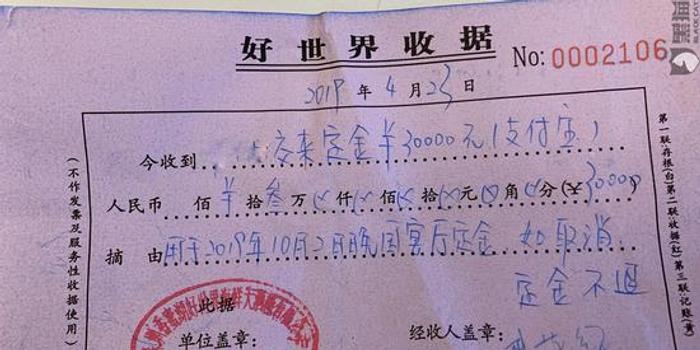 好世界收据
No: 0002106
2019 年 4 月 23 日
今收到 交来定金¥30000元(支付宝)
人民币 佰¥拾叁万 仟 佰 拾 元 角 分(¥30000)
摘由 用于2019年10月2日晚国宴厅定金 如取消
定金不退
此据
单位盖章:
经收人盖章:
(不作发票及服务性收据使用)
第一联存根(白)第二联收据(红)第三联记账(黄)
黑猫
BLACK CAT